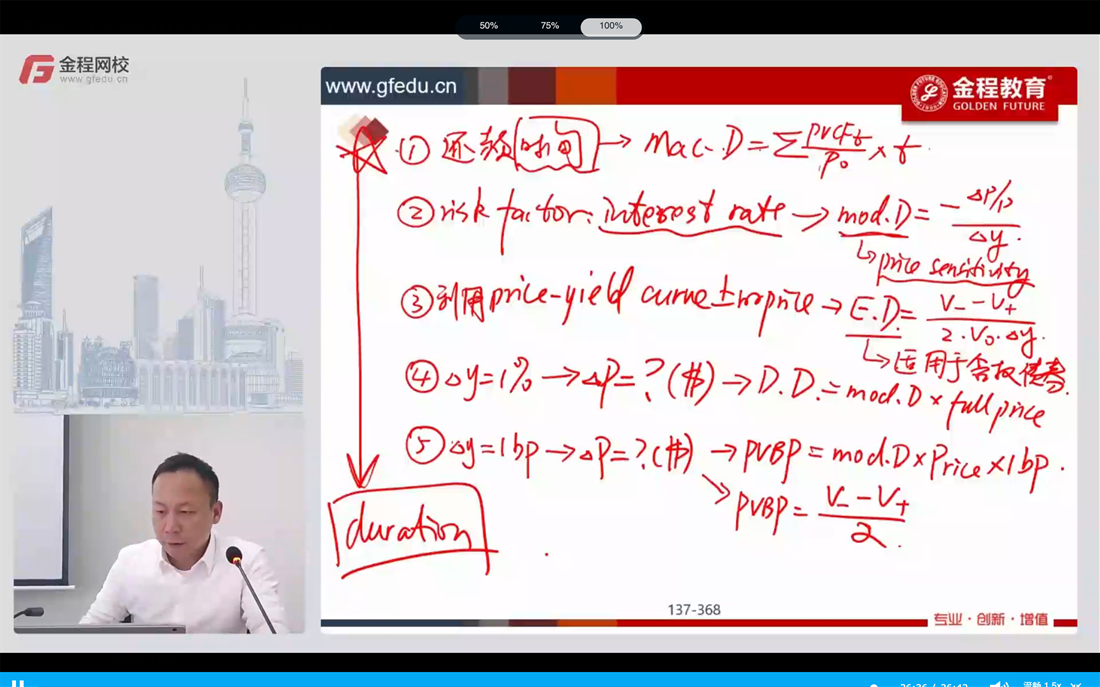 50% 75% 100%
金程网校
www.gfedu.cn
www.gfedu.cn
金程教育
GOLDEN FUTURE
① 还款时间 → Mac.D = Σ PVCFt/P0 × t
② risk factor: interest rate → mod.D = - ΔP/P / Δy
↳ price sensitivity
③ 利用 price-yield curve 上 price → E.D. = V_- - V_+ / 2·V0·Δy.
↳ 适用于含权债券.
④ Δy=1% → ΔP=?($) → D.D. = mod.D × full price
⑤ Δy=1bp → ΔP=?($) → PVBP = mod.D × Price × 1bp.
↘ PVBP = V_- - V_+ / 2.
duration
137-368
专业·创新·增值